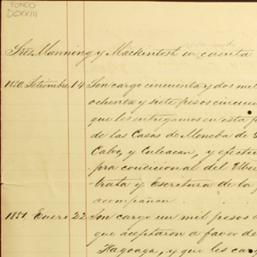 FONDO
DCXXIII
Sres Manning y Mackintosh en cuenta
1850 Setiembre 14 Son cargo cincuenta y dos mil
ochenta y siete pesos cincuen
que les entregamos en esta p
de las Casas de Moneda de
Calvo, y Culiacan, y efectu
pra condicional del
trata y Escritura de la
acompañan.
1851 Enero 22 Son cargo un mil pesos
que aceptaron a favor de
Yturbe y que les car